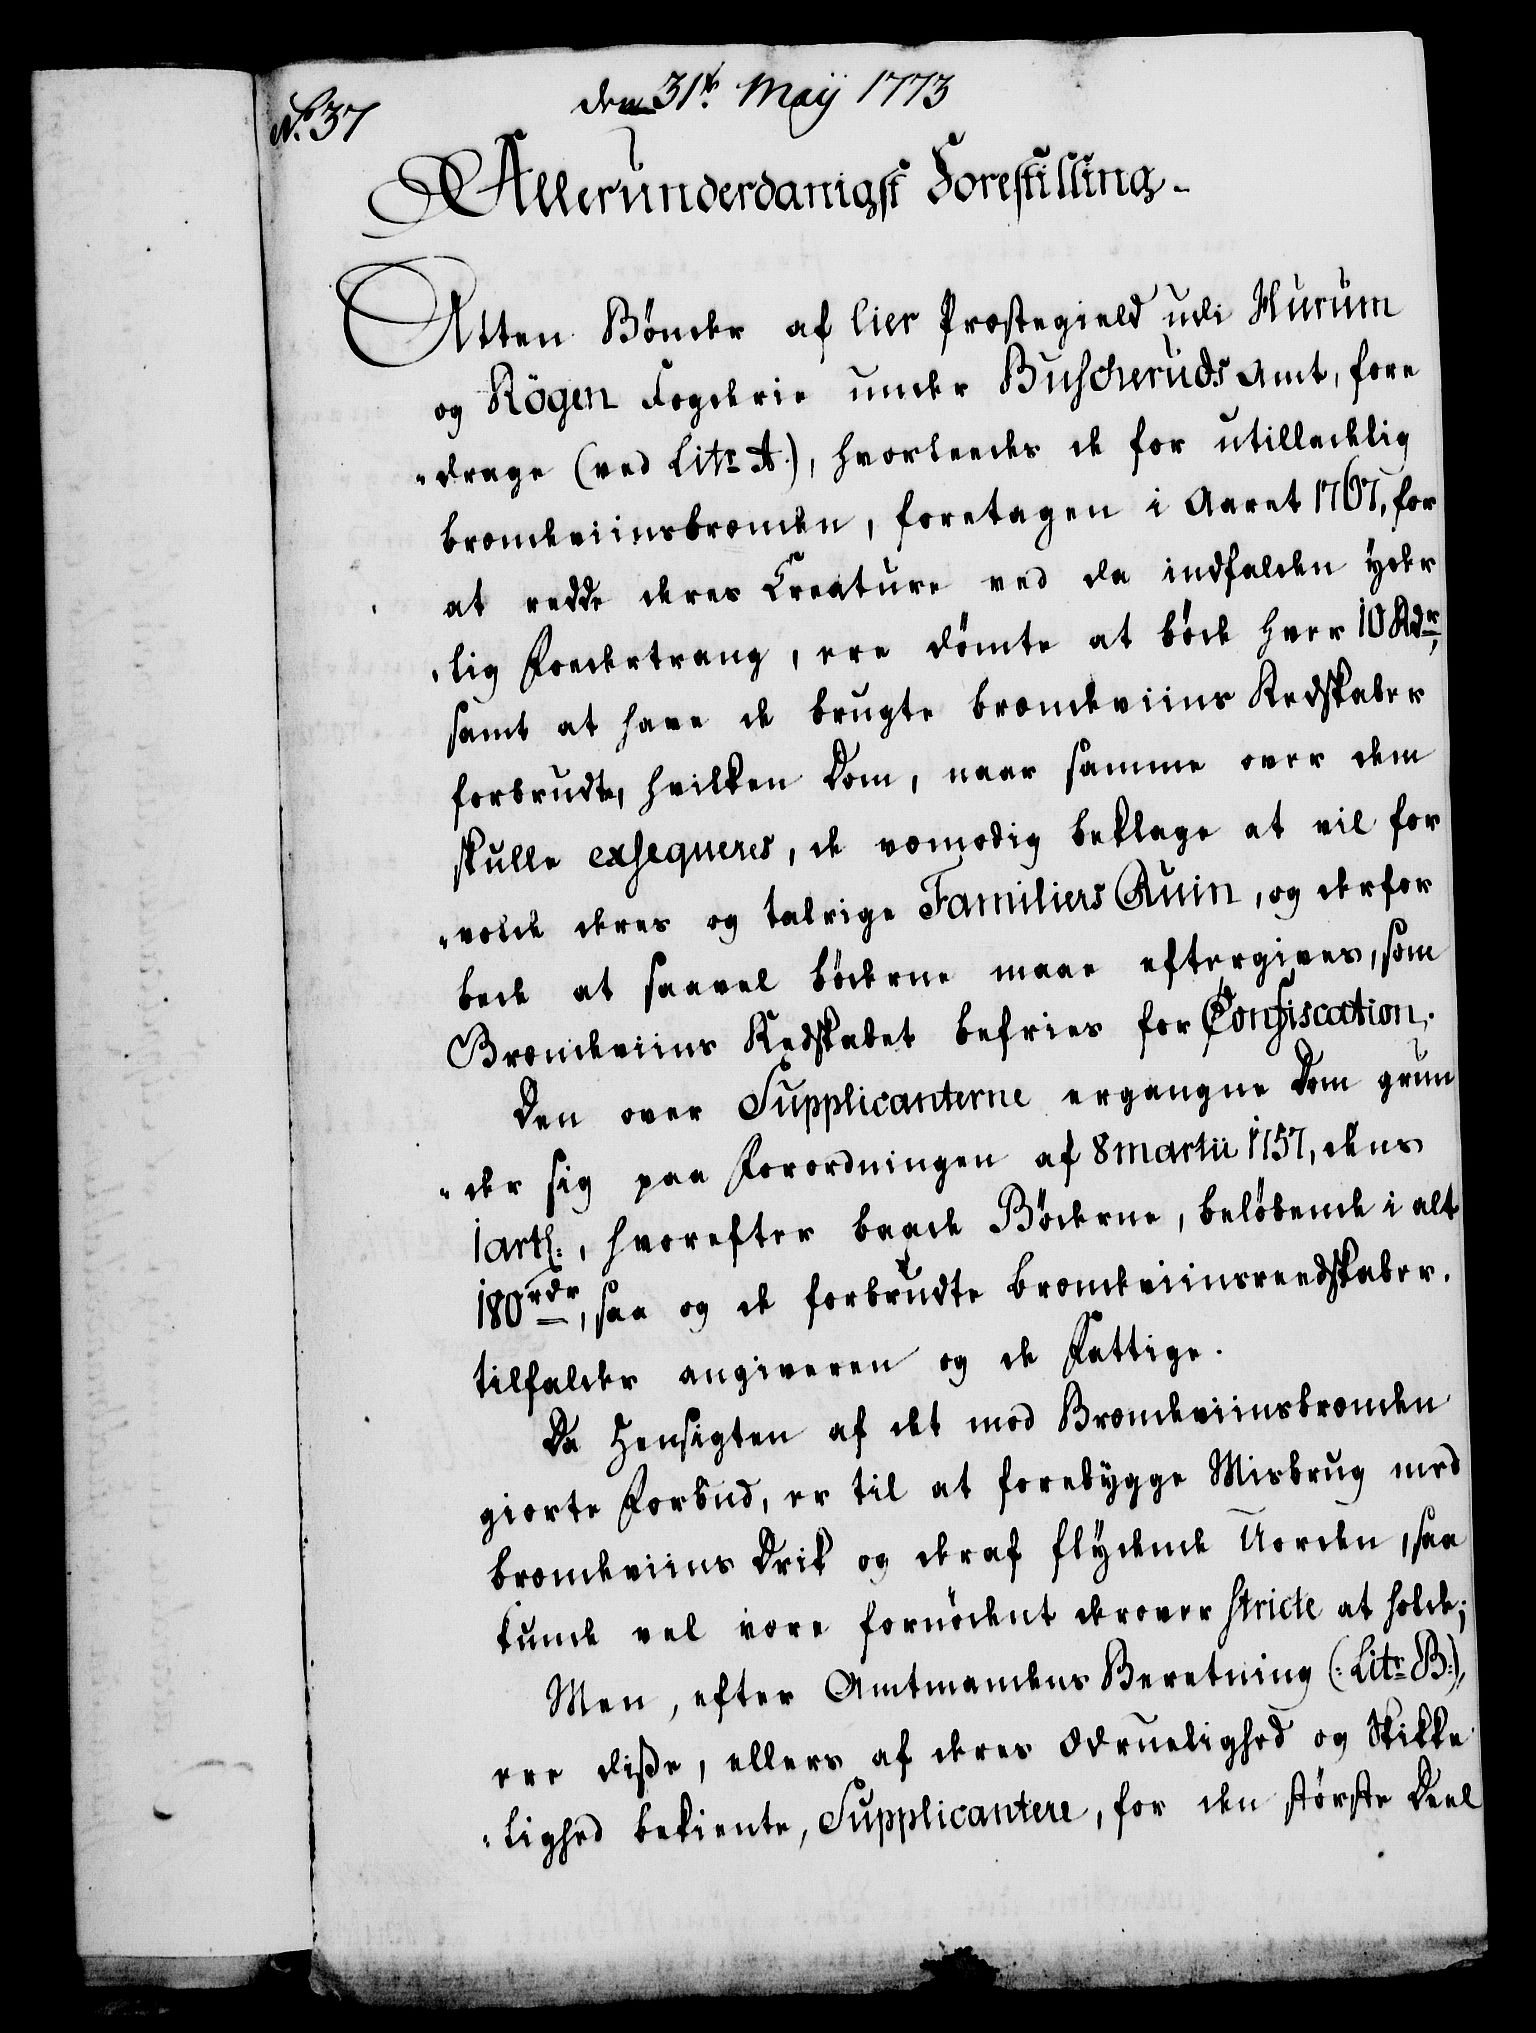 No. 37
den 31t. Maij 1773
Allerunderdanigst Forestilling.
Atten Bønder af Lier Præstegield udi Hurum
og Røgen Fogderie under Buscheruds Amt, fore
"drage (ved Litr. A.), hvorledes de for utilladelig
brændeviinsbrænden, foretagen i Aaret 1767, for
at redde deres Creature ved da indfalden yder
"lig Fodertrang, ere dømte at bøde hver 10 Rdr,
samt at have de brugte brændeviins Redskaber
forbrudte, hvilken Dom, naar samme over dem
skulle exseqveres, de vemodig beklage at vil for
"volde deres og talrige Familiers Ruin, og derfor
bede at saavel bøderne maae eftergives, som
Brændeviins Redskabet befries for Confiscation.
Den over Supplicanterne ergangne Dom grun
"der sig paa Forordningen af 8 martii 1757, dens
1 art:, hvorefter baade Bøderne, beløbende i alt
180 rdr, saa og de forbrudte brændeviinsreedskaber.
tilfalder angiveren og de Fattige.
Da Hensigten af det mod Brændeviinsbrænden
giorte Forbud, er til at forebygge Misbrug med
brændeviins Drik og deraf flydende Uorden, saa
kunde vel være fornødent derover stricte at holde;
Men, efter Amtmandens Beretning (: Litr. B:),
ere disse, ellers af deres Ædruelighed og Skikke
"lighed bekiente, Supplicantere, for den største Deel